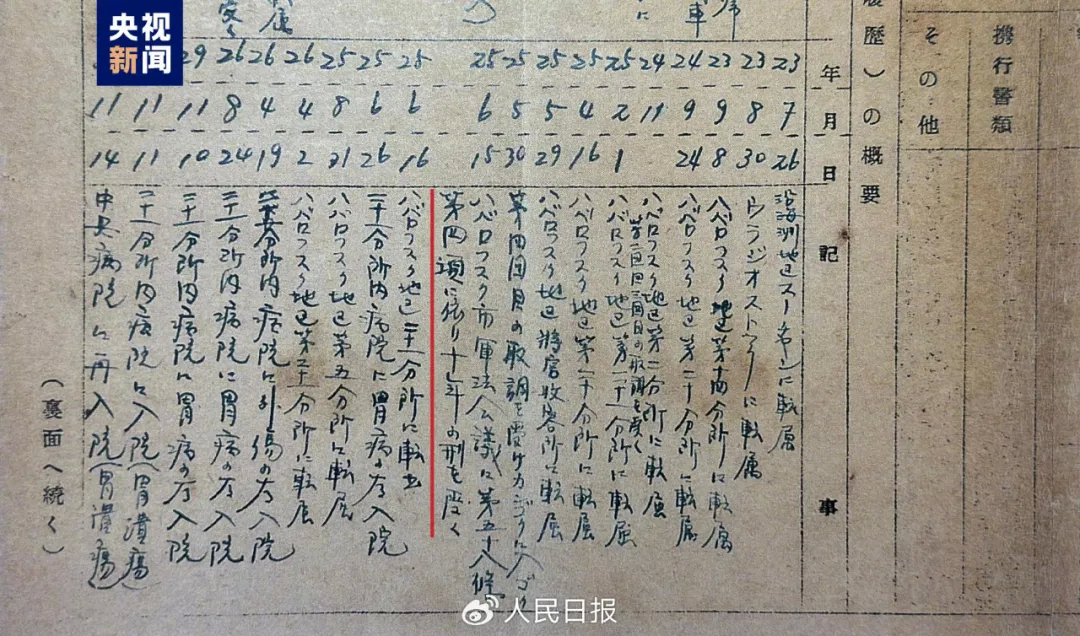 携行書類
その他
履歴）の概要
年月日 記事
23 7 26 沿海州地区スーチャンに転属
23 8 30 ウラジオストクに転属
23 9 8 ハバロフスク地区第十四分所に転属
24 9 24 ハバロフスク地区第二十分所に転属
24 11 ハバロフスク地区第二分所に転属
25 2 1 ハバロフスク地区第二十一分所に転属
25 4 16 ハバロフスク地区第二十分所に転属
25 5 29 ハバロフスク地区将官收容所に転属
25 5 30 第四回目の取調を受け
25 6 15 ハバロフスク市軍法会議に第五十八條
第四項に依り二十五年の刑を受く
25 6 16 ハバロフスク地区二十一分所に転出
25 6 26 二十一分所内病院に胃病の為入院
25 8 21 ハバロフスク地区第五分所に転属
26 4 2 ハバロフスク地区第二十一分所に転属
26 4 19 分所内病院に外傷の為入院
26 8 24 二十一分所内病院に胃病の為入院
29 11 10 二十一分所内病院に胃病の為入院
11 11 二十一分所内病院に入院（胃潰瘍）
11 14 中央病院に再入院（胃潰瘍）
（裏面へ続く）
央视新闻
人民日报